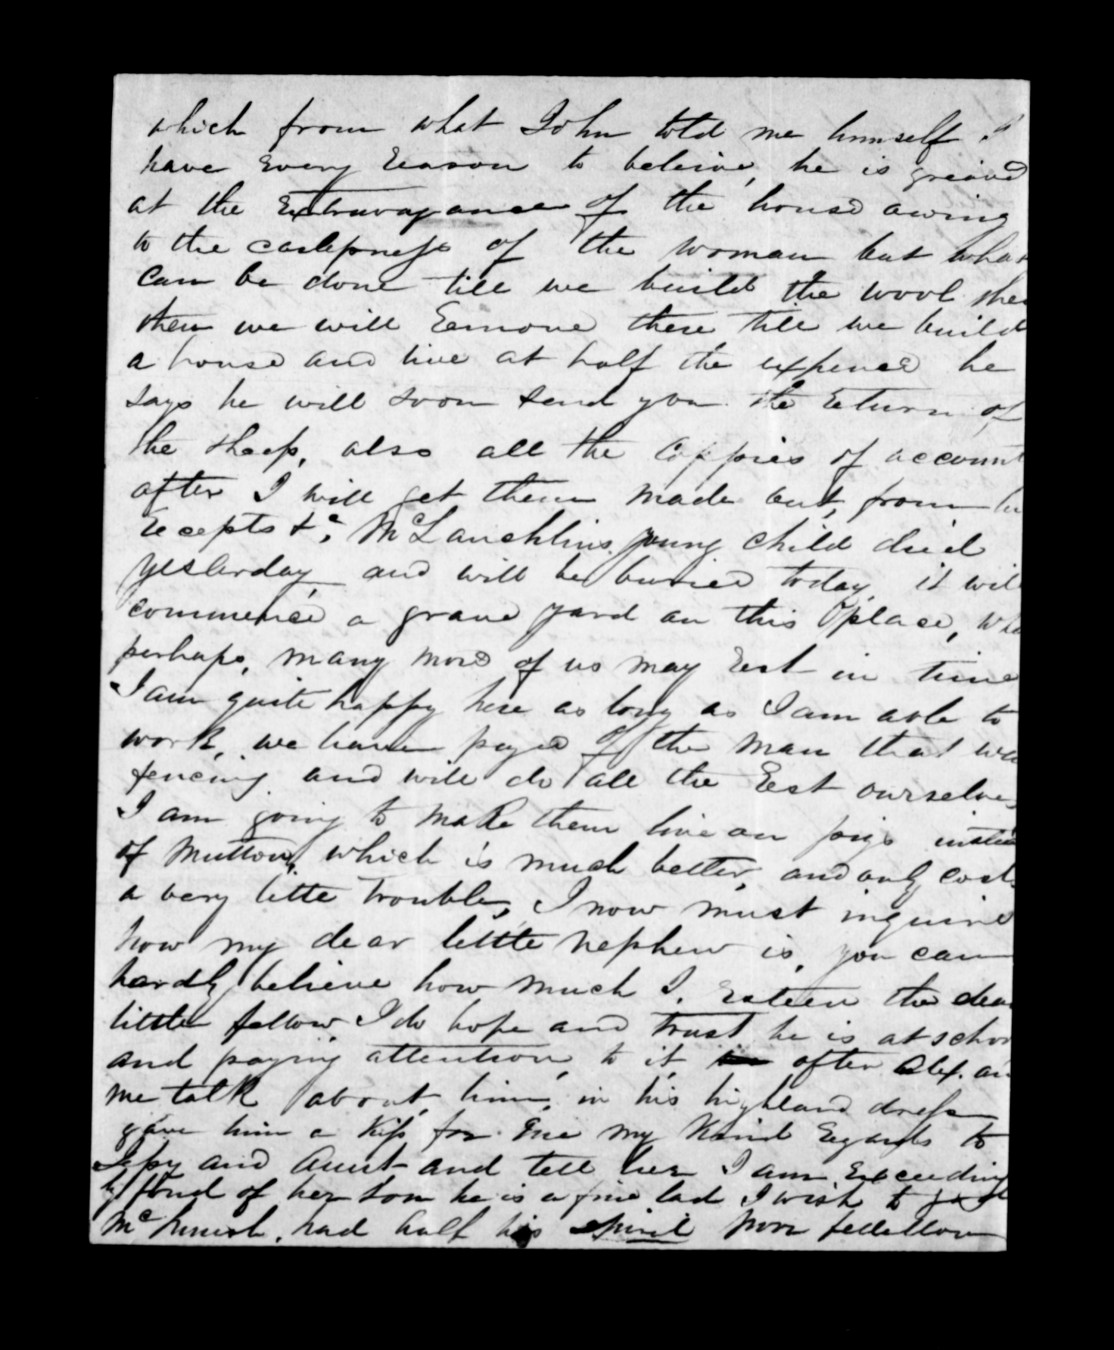 which from what John told me himself I
have every reason to beleive, he is greived
at the Extravagance of the house owing
to the carlepness of the woman but what
can be done till we build the wool shed
then we will Remove there till we build
a house and live at half the expence he
says he will soon send you the return of
the sheep, also all the Coppies of account
after I will get them made out, from
recepts &c, McLauchlins young child died
yesterday, and will be buried today, it will
commence a grave yard on this place, wh
perhaps, many more of us may rest in time
I am quite happy here as long as I am able to
work, we have payed of the man that was
fencing and will do all the rest ourselves
I am going to make them live on pigs instead
of Mutton, which is much better, and only costs
a very litte trouble, I now must inquire
how my dear little nephew is, you can
hardly believe how much I. Esteem the dear
little fellow, I do hope and trust he is at school
and paying attention, to it, after Alex. and
me talk about, him, in his highland dress
gave him a kiss for me my kind Regards to
and Aunt and tell her I am Exceeding
ly fond of her son he is a fine lad I wish to
Mc had half his spirit poor fellellow